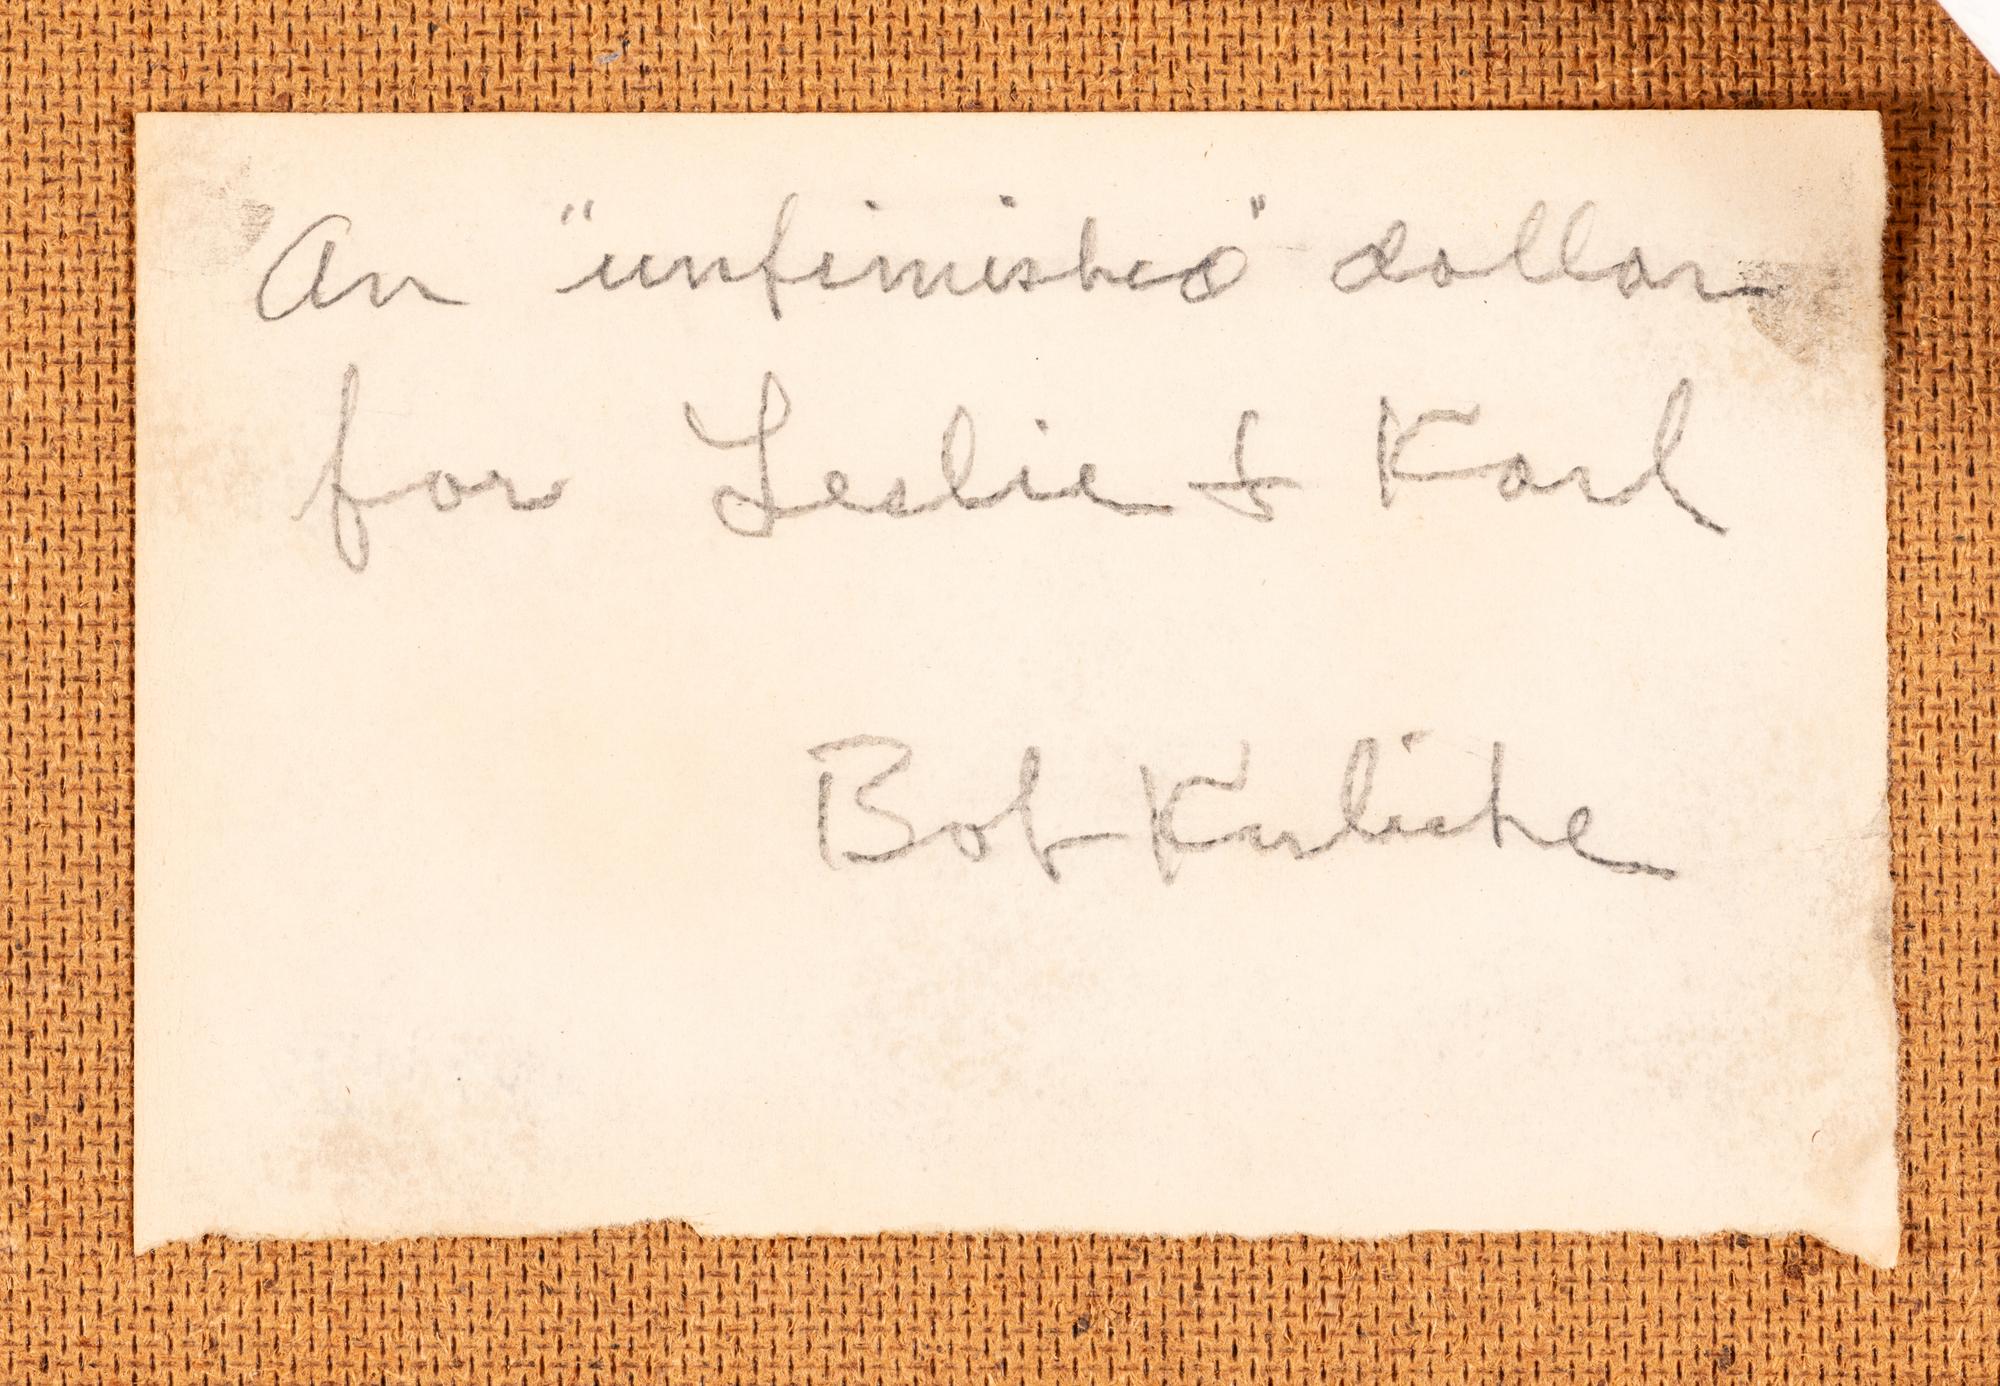 An "unfinished" dollar
for Leslie & Karl
Bob Kulicke